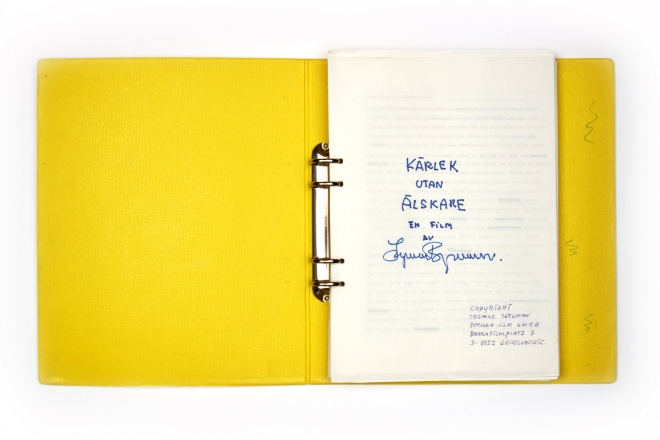 KÄRLEK
UTAN
ÄLSKARE
EN FILM
AV
Ingmar Bergman.
COPYRIGHT
INGMAR BERGMAN
FILM GMBH
BAVARIAFILMPLATZ 7
D-8022 GEISELGASTEIG